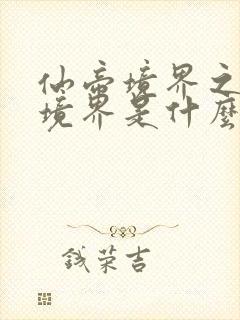 仙帝境界之
境界是什麼
钱荣吉